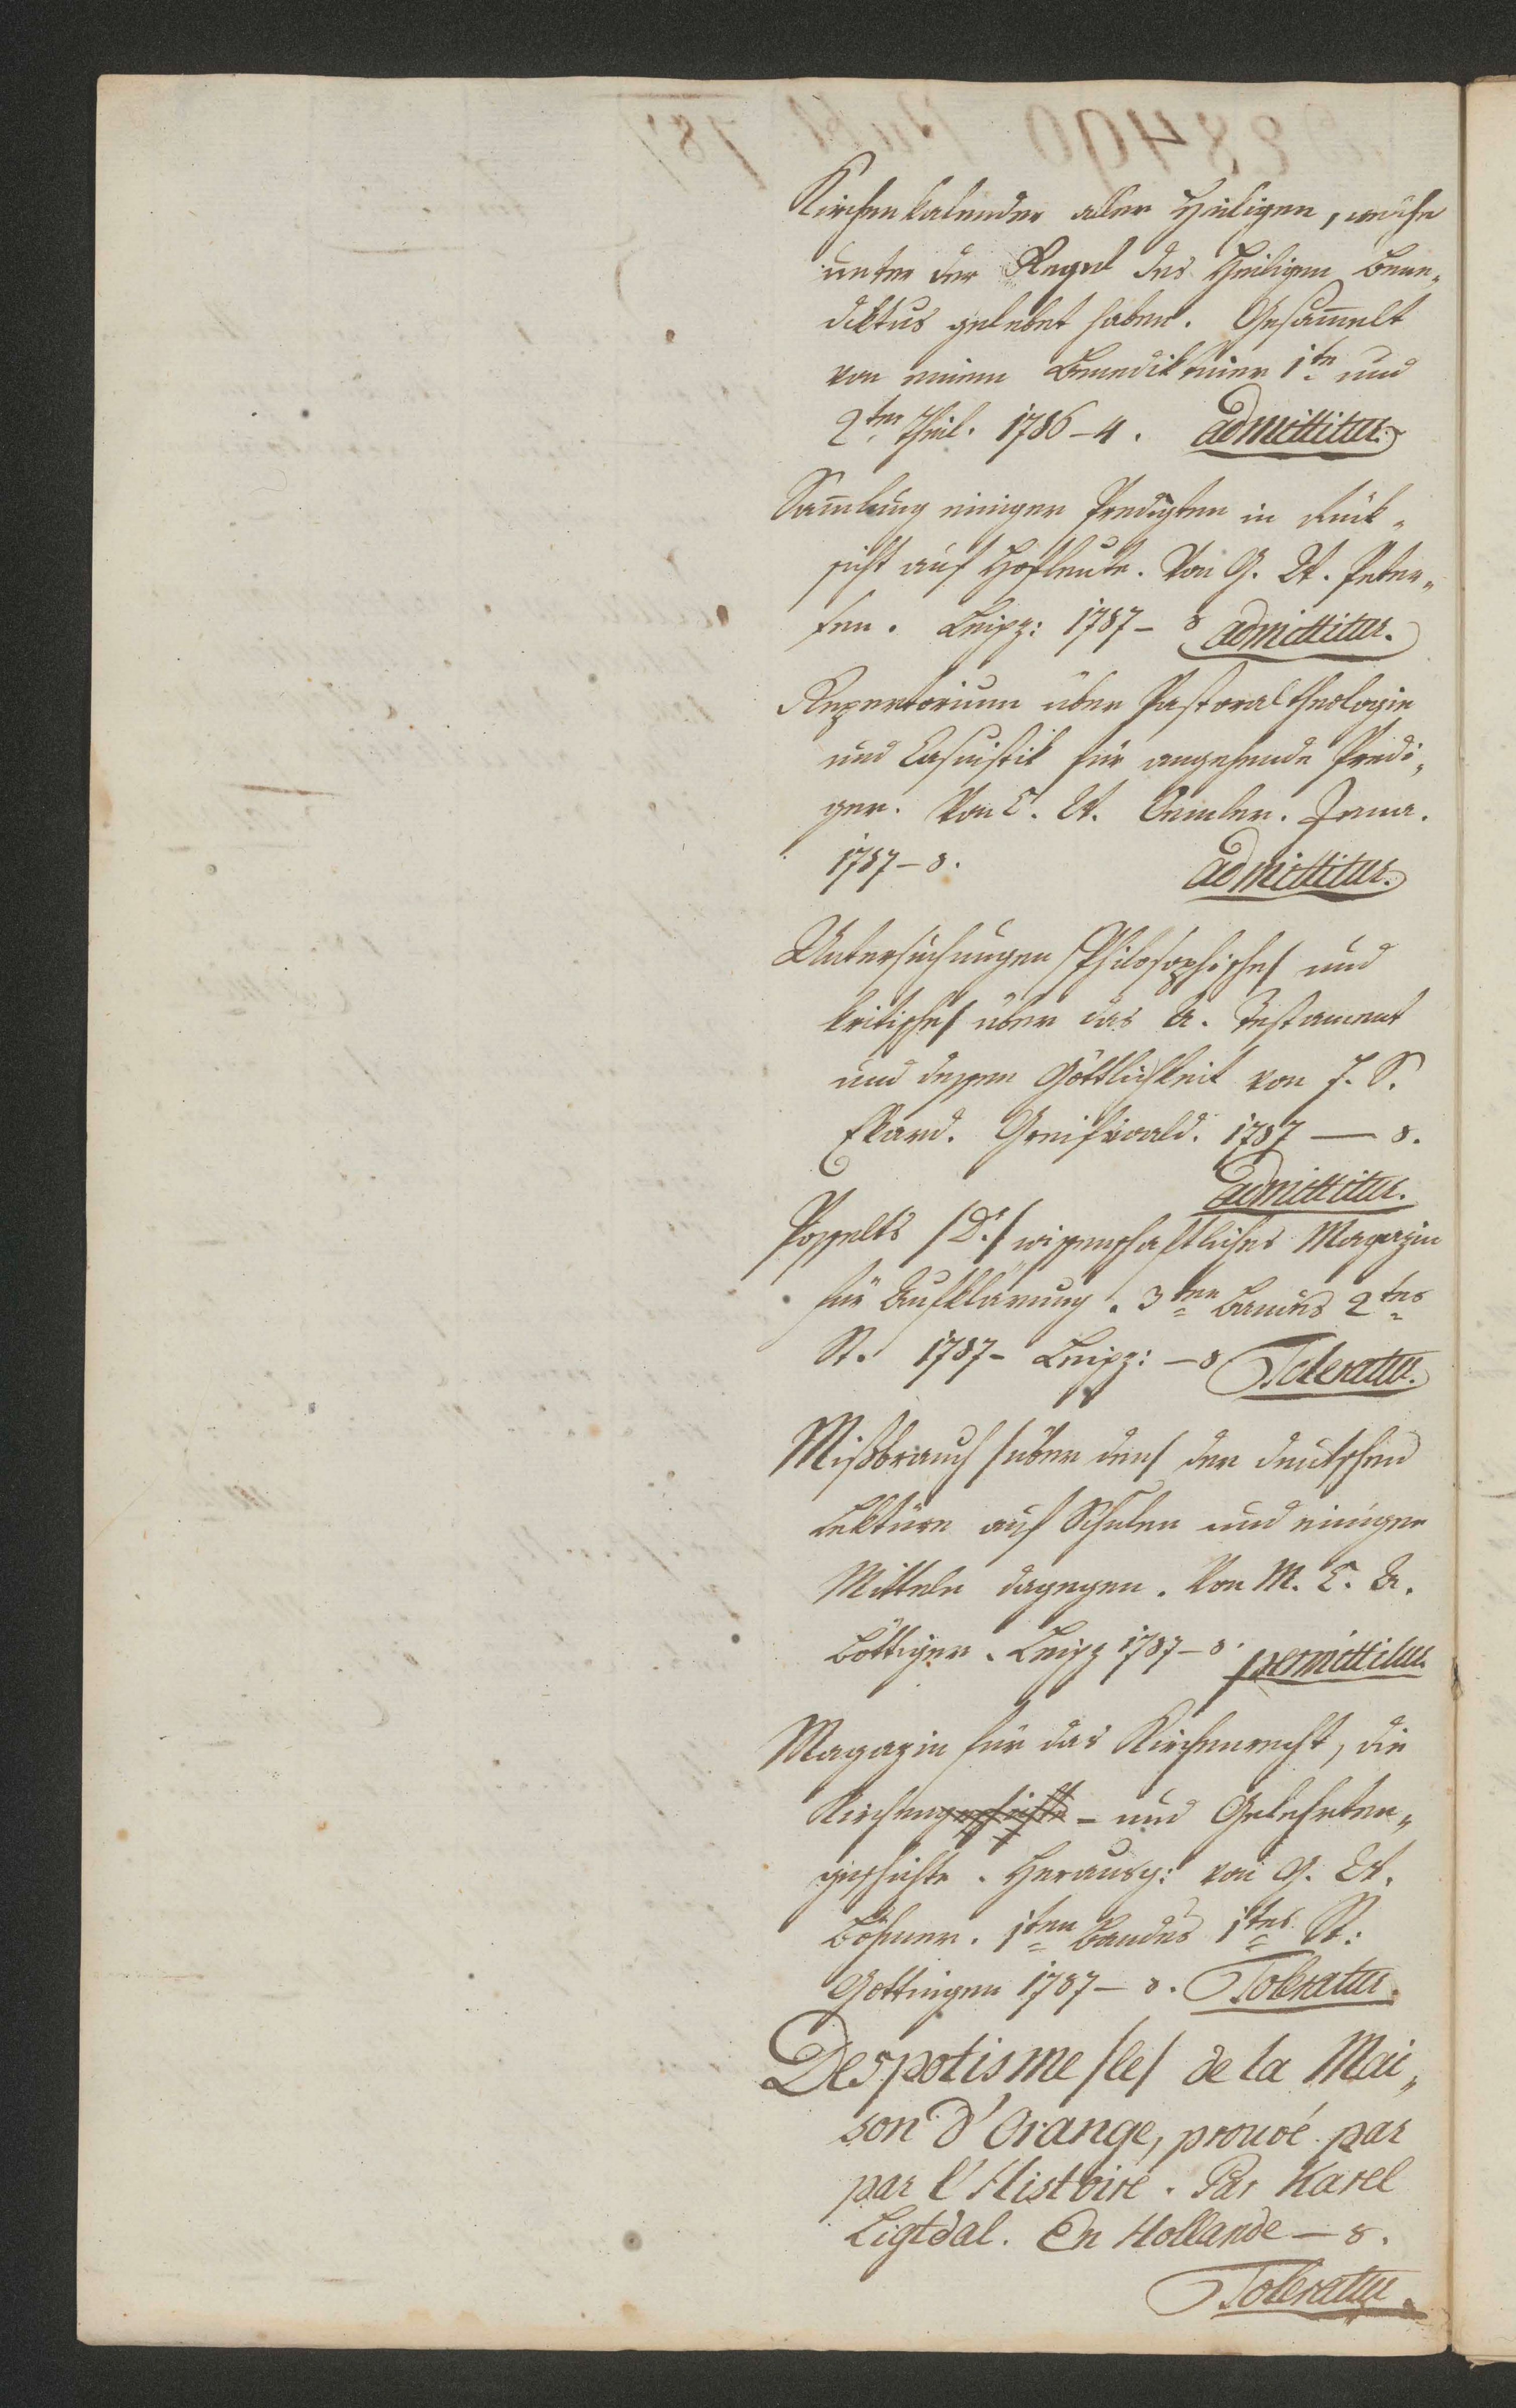 Kirchenkalender aller Heiligen, welche
unter der Regel des Heiligen Bene„
diktus gelebet haben. Gesam̄elt
von einem Benediktiner 1te und
2ter Theil. 1786 – 4. admittitur.
Sam̄lung einiger Predigten in Rük„
sicht auf Hofleute. Von G. W. Peter„
sen. Leipz: 1787 – 8 admittitur.
Repertorium über Pastoraltheologie
und Casuistik für angehende Predi„
ger. Von C. W. Oemler. Jena.
1787 – 8. admittitur.
Untersuchungen /Philosophische/ und
kritische/ über das A. Testament
und dessen Göttlichkeit von J. S.
Ekard. Greifswald. 1787 — 8.
admittitur.
Posselts /Dr./ wissenschaftliches Magazin
für Aufklärung. 3ten Bandes 2tes
St. 1787 – Leipz: – 8 Toleratur.
Mißbrauch /über den/ der deutschen
Lektüre auf Schulen und einigen
Mitteln dagegen. Von M. C. A.
Böttiger. Leipz 1787 – 8. permittitur
Magazin für das Kirchenrecht, die
Kirchengeschichte – und Gelehrten„
geschichte. Herausg: von G. W.
Böhmer. 1ten Bandes 1tes St:
Göttingen 1787 – 8. Toleratur.
Despotisme /le/ de la Mai„
son d'Orange, prouvé par
par l'Histoire. Par Karel
Ligtdal. En Hollande — 8.
Toleratur.